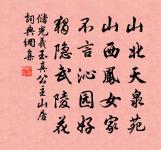 山北天泉苑
山西鳳女家
不言沁園好
獨隱武陵花
儲光羲玉真公主山居
詞典網集